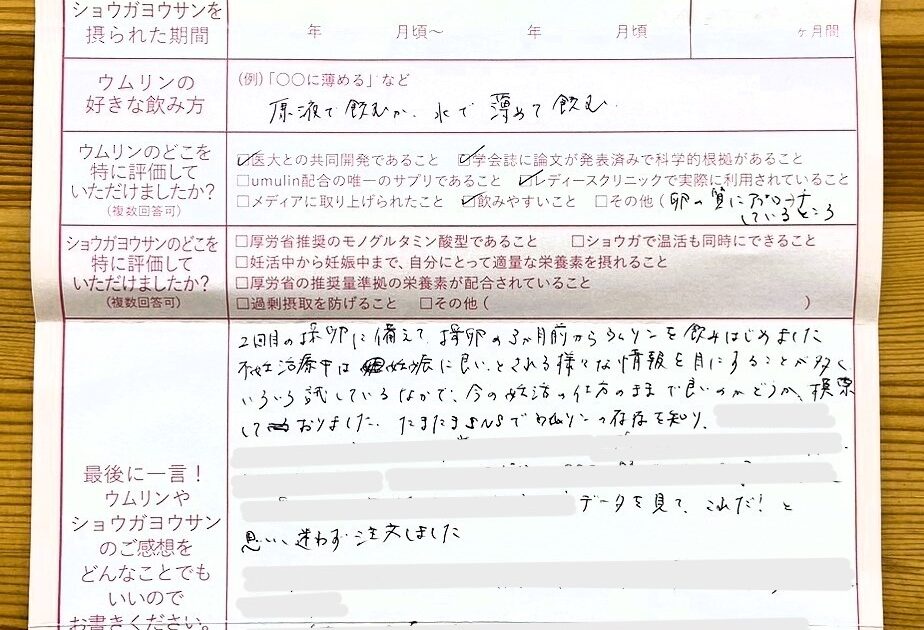 ショウガヨウサンを
摂られた期間
年 月頃〜 年 月頃 ヶ月間
ウムリンの
好きな飲み方
(例)「〇〇に薄める」など
原液で飲むか、水で薄めて飲む
ウムリンのどこを
特に評価して
いただけましたか?
(複数回答可)
☑医大との共同開発であること ☑学会誌に論文が発表済みで科学的根拠があること
□umulin配合の唯一のサプリであること ☑レディースクリニックで実際に利用されていること
□メディアに取り上げられたこと ☑飲みやすいこと □その他(卵の質にアプローチ
しているところ
ショウガヨウサンのどこを
特に評価して
いただけましたか?
(複数回答可)
□厚労省推奨のモノグルタミン酸型であること □ショウガで温活も同時にできること
□妊活中から妊娠中まで、自分にとって適量な栄養素を摂れること
□厚労省の推奨量準拠の栄養素が配合されていること
□過剰摂取を防げること □その他( )
最後に一言!
ウムリンや
ショウガヨウサン
のご感想を
どんなことでも
いいので
お書きください。
2回目の採卵に備えて、採卵の3か月前からウムリンを飲みはじめました
不妊治療中は 妊娠に良いとされる様々な情報を目にすることが多く
いろいろ試しているなかで、今の妊活の仕方のままで良いのかどうか、模索
しておりました。たまたまSNSでウムリンの存在を知り、
データを見て、これだ!と
思い、迷わず注文しました